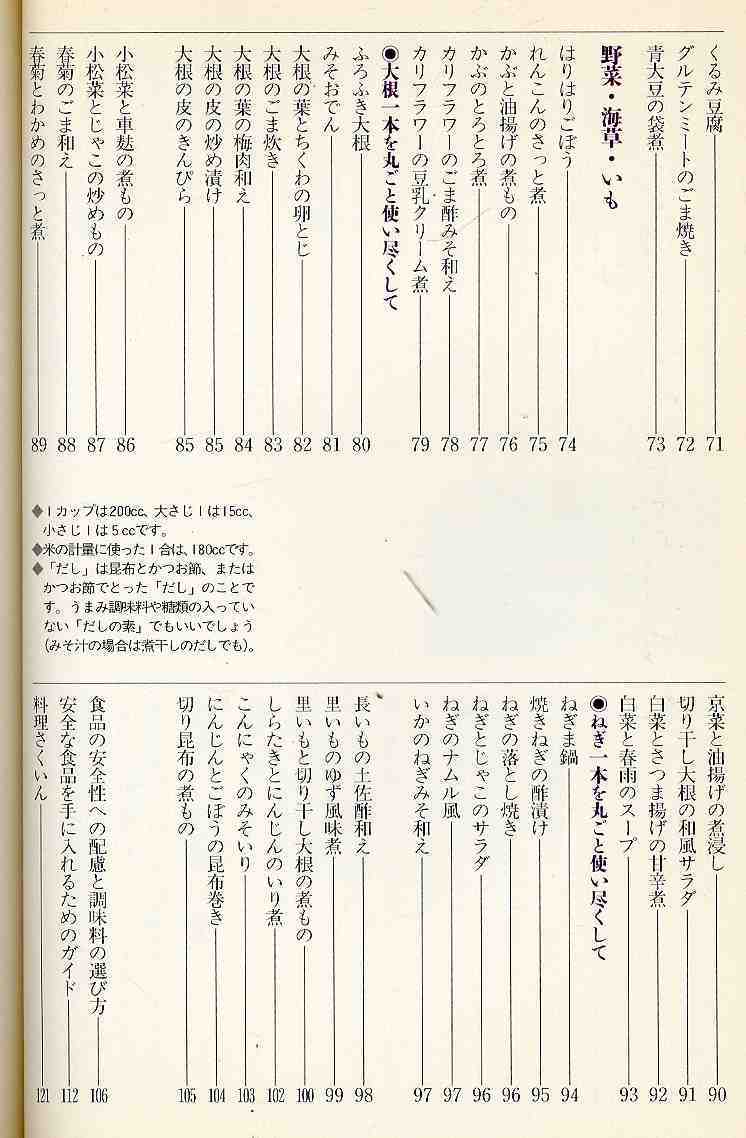 くるみ豆腐 71
グルテンミートのごま焼き 72
青大豆の袋煮 73
野菜・海草・いも
はりはりごぼう 74
れんこんのさっと煮 75
かぶと油揚げの煮もの 76
かぶのとろとろ煮 77
カリフラワーのごま酢みそ和え 78
カリフラワーの豆乳クリーム煮 79
◉大根一本を丸ごと使い尽くして
ふろふき大根 80
みそおでん 81
大根の葉とちくわの卵とじ 82
大根のごま炊き 83
大根の葉の梅肉和え 84
大根の皮の炒め漬け 85
大根の皮のきんぴら 85
小松菜と車麩の煮もの 86
小松菜とじゃこの炒めもの 87
春菊のごま和え 88
春菊とわかめのさっと煮 89
◆1カップは200cc、大さじ1は15cc、
小さじ1は5ccです。
◆米の計量に使った1合は、180ccです。
◆「だし」は昆布とかつお節、または
かつお節でとった「だし」のことで
す。うまみ調味料や糖類の入ってい
ない「だしの素」でもいいでしょう
(みそ汁の場合は煮干しのだしでも)。
京菜と油揚げの煮浸し 90
切り干し大根の和風サラダ 91
白菜とさつま揚げの甘辛煮 92
白菜と春雨のスープ 93
◉ねぎ一本を丸ごと使い尽くして
ねぎま鍋 94
焼きねぎの酢漬け 95
ねぎの落とし焼き 96
ねぎとじゃこのサラダ 96
ねぎのナムル風 97
いかのねぎみそ和え 97
長いもの土佐酢和え 98
里いものゆず風味煮 99
里いもと切り干し大根の煮もの 100
しらたきとにんじんのいり煮 102
こんにゃくのみそいり 103
にんじんとごぼうの昆布巻き 104
切り昆布の煮もの 105
食品の安全性への配慮と調味料の選び方 106
安全な食品を手に入れるためのガイド 112
料理さくいん 121